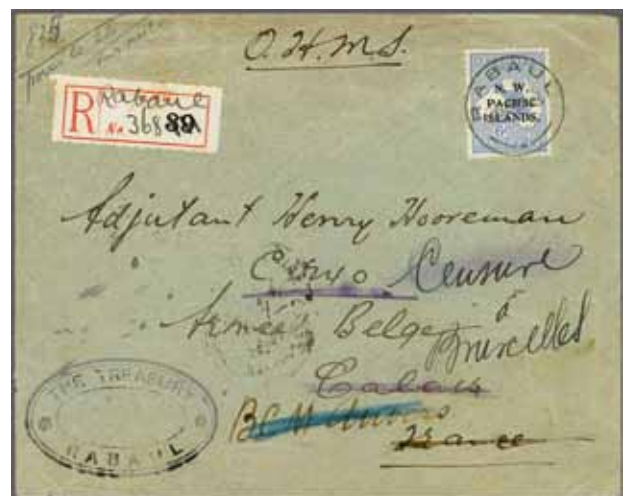 O.H.M.S.
Rabaul
R No. 368
RABAUL
N. W.
PACIFIC
ISLANDS.
Adjutant Henry Hooreman
Censure
Armée Belge à
Bruxelles
Calais
France
THE TREASURY
RABAUL